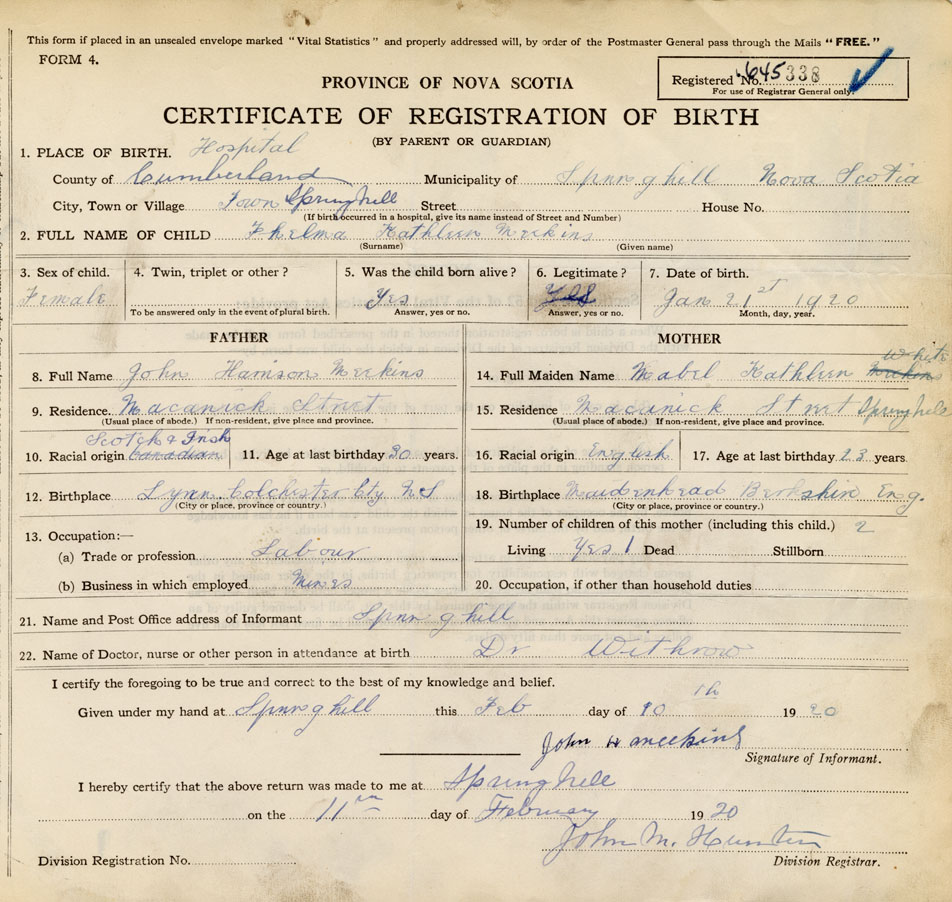 This form if placed in an unsealed envelope marked "Vital Statistics" and properly addressed will, by order of the Postmaster General pass through the Mails "FREE."
FORM 4.
Registered No. 645338
For use of Registrar General only.
PROVINCE OF NOVA SCOTIA
CERTIFICATE OF REGISTRATION OF BIRTH
(BY PARENT OR GUARDIAN)
1. PLACE OF BIRTH. Hospital
County of Cumberland Municipality of Springhill Nova Scotia
City, Town or Village Town Springhill Street House No.
(If birth occurred in a hospital, give its name instead of Street and Number)
2. FULL NAME OF CHILD Thelma Kathleen Meekins
(Surname) (Given name)
3. Sex of child. 4. Twin, triplet or other? 5. Was the child born alive? 6. Legitimate? 7. Date of birth.
Female Yes Yes Jan 21st 1920
To be answered only in the event of plural birth. Answer, yes or no. Answer, yes or no. Month, day, year.
FATHER MOTHER
8. Full Name John Harrison Meekins
9. Residence. Street
(Usual place of abode.) If non-resident, give place and province.
Scotch & Irish
10. Racial origin Canadian 11. Age at last birthday 30 years.
12. Birthplace Lynn Colchester Cty N S
(City or place, province or country.)
13. Occupation:—
(a) Trade or profession Labour
(b) Business in which employed Mines
White
14. Full Maiden Name Mabel Kathleen Meekins
15. Residence Street Springhill
(Usual place of abode.) If non-resident, give place and province.
16. Racial origin English 17. Age at last birthday 23 years.
18. Birthplace Maidenhead Berkshire Eng.
(City or place, province or country.)
19. Number of children of this mother (including this child.) 2
Living Yes 1 Dead Stillborn
20. Occupation, if other than household duties
21. Name and Post Office address of Informant Springhill
22. Name of Doctor, nurse or other person in attendance at birth Dr Withrow
I certify the foregoing to be true and correct to the best of my knowledge and belief.
Given under my hand at Springhill this Feb day of 10th 1920
John H Meekins
Signature of Informant.
I hereby certify that the above return was made to me at Springhill
on the 11th day of February 1920
John M. Hunter
Division Registration No. Division Registrar.